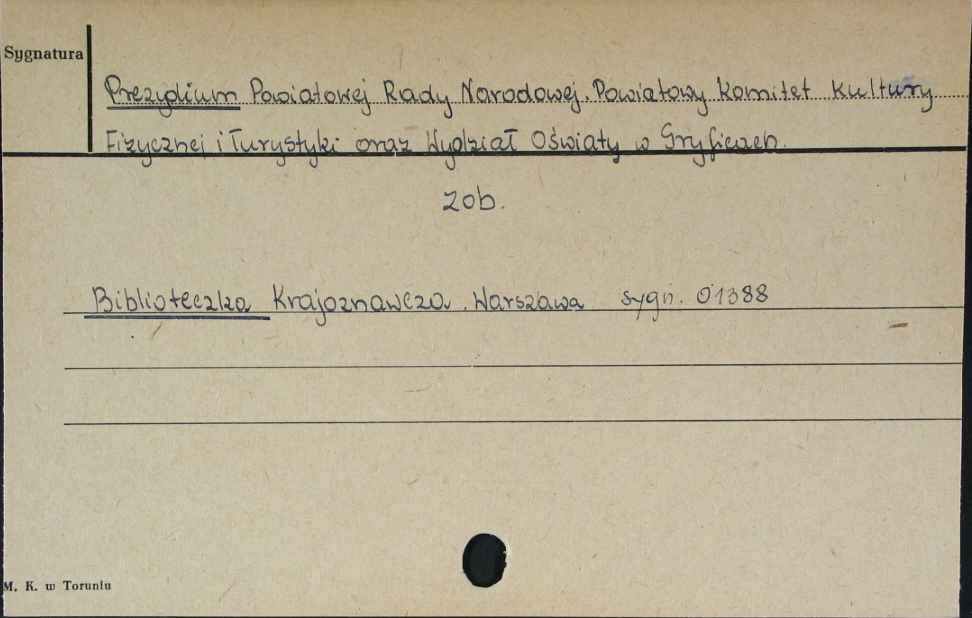 Sygnatura
Prezydium Powiatowej Rady Narodowej. Powiatowy Komitet Kultury
Fizycznej i Turystyki oraz Wydział Oświaty w Gryficach.
zob.
Biblioteczka Krajoznawcza. Warszawa sygn. 01388
M. K. w Toruniu